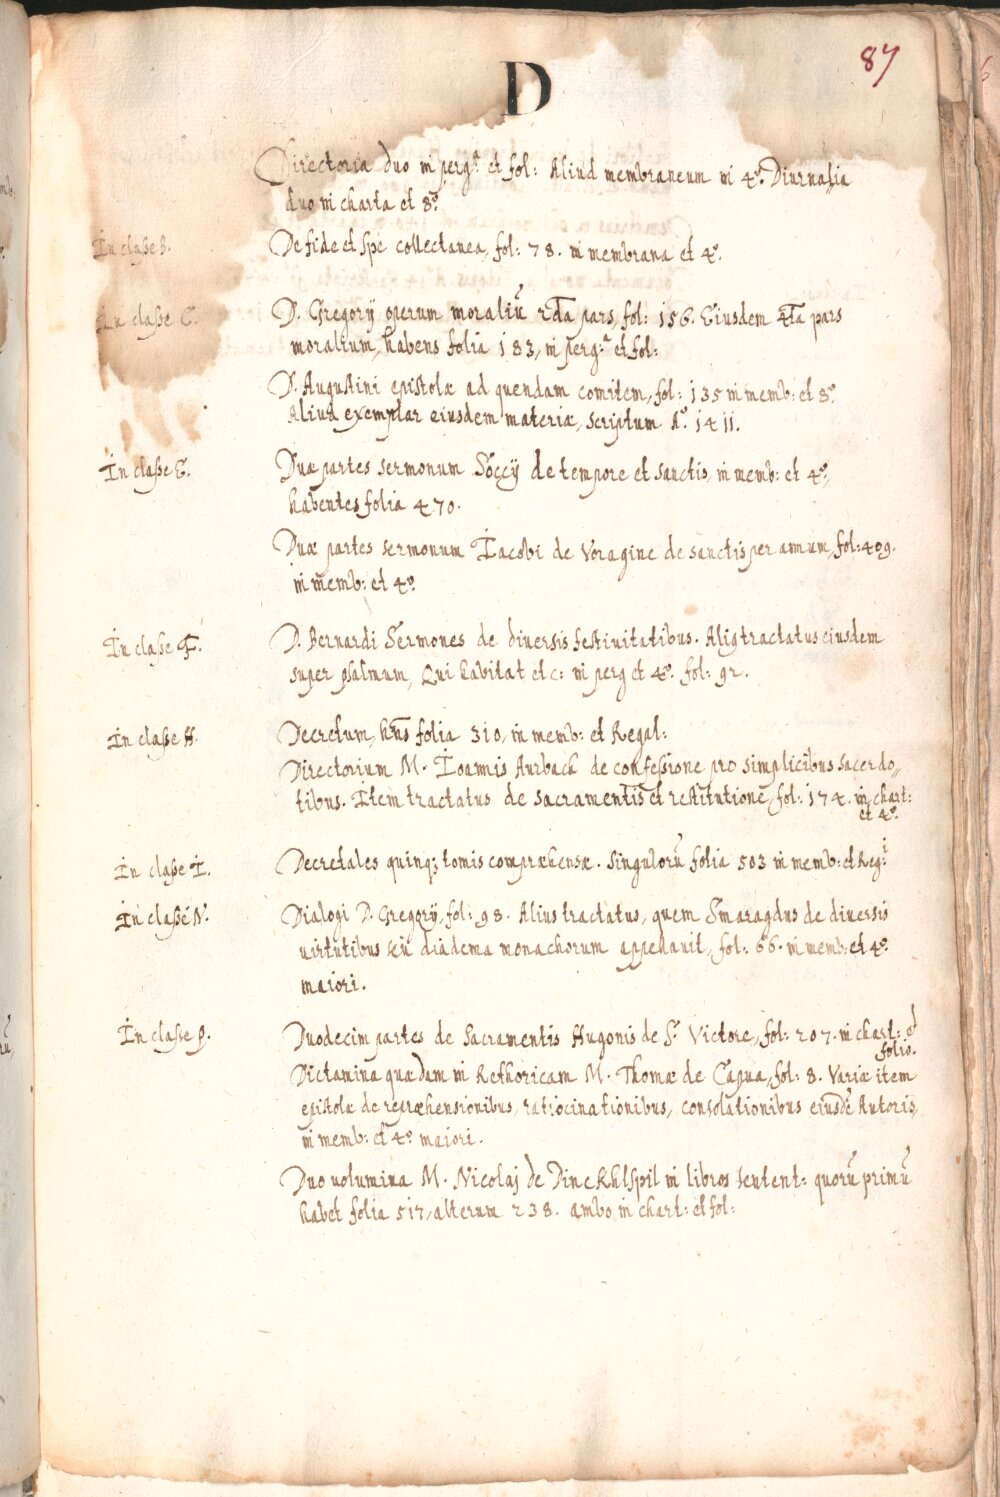 87
D
Directoria duo in perg:ª et fol: Aliud membraneum in 4º. Diurnalia
duo in charta et 8º.
In classe B. De fide et spe collectanea, fol: 78. in membrana et 4º.
In classe C. D. Gregorÿ operum moraliū 2da pars, fol: 156. Eiusdem 4ta pars
moralium, habens folia 183, in perg:ª et fol:
D. Augustini epistolæ ad quendam comitem, fol: 135 in memb: et 8º.
Aliud exemplar eiusdem materiæ, scriptum Aº. 1411.
In classe E. Duæ partes sermonum Soccÿ de tempore et sanctis, in memb: et 4º,
habentes folia 470.
Duæ partes sermonum Iacobi de Voragine de sanctis per annum, fol: 409.
in memb: et 4º.
In classe F. D. Bernardi Sermones de diuersis festiuitatibus. Alig tractatus eiusdem
super psalmum, Qui habitat etc: in perg et 4º. fol: 92.
In classe H. Decretum, hn̄s folia 310, in memb: et Regal:
Directorium M. Ioannis Aurback de confessione pro simplicibus sacerdo„
tibus. Item tractatus de sacramentis et restitutione, fol: 174. in chart:
et 4º.
In classe I. Decretales quinq; tomis compræhensæ. Singulorū folia 503 in memb: et Reg:
In classe N. Dialogi D. Gregorÿ, fol: 98. Alius tractatus, quem Smaragdus de diuersis
uirtutibus seu diadema monachorum appellauit, fol: 66. in memb: et 4º.
maiori.
In classe P. Duodecim partes de Sacramentis Hugonis de S. Victore, fol: 207. in chart: et
folio.
Dictamina quædam in Rethoricam M. Thomæ de Capua, fol: 8. Variæ item
epistolæ de repræhensionibus, ratiocinationibus, consolationibus eiusdē Autoris,
in memb: et 4º maiori.
Duo uolumina M. Nicolaj de Dinckhlspil in libros sentent: quorū primū
habet folia 517, alterum 238. ambo in chart: et fol: